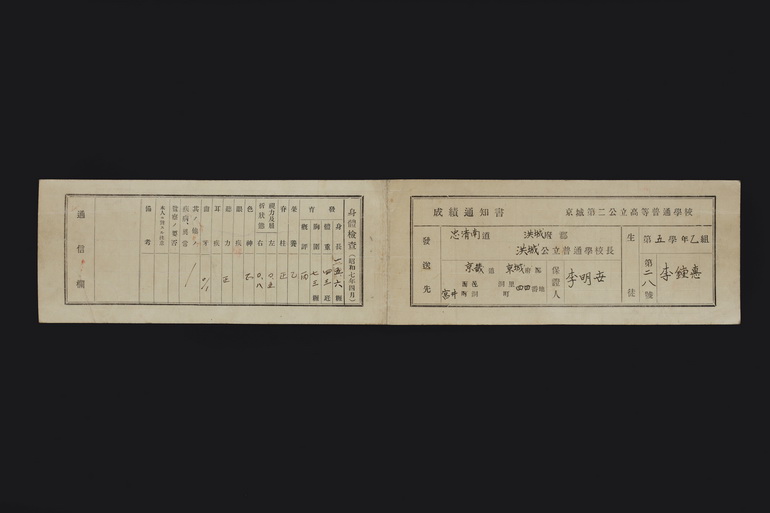 成績通知書　京城第二公立高等普通學校
發送先
忠清南道　洪城　郡
洪城公立普通學校長
京畿道　京城府
宮井
四四番地
保證人
李明世
生徒
第五學年乙組
第二八號
李鍾惠
身體檢查（昭和七年四月）
發育
身長　一五六糎
體重　四三瓩
胸圍　七三糎
概評　丙
榮養　乙
脊柱　正
視力及屈折狀態
左　〇.五
右　〇.八
色神　正
眼疾
聽力　正
耳疾
齒牙
其ノ他ノ疾病、異常
監察ノ要否
本人ニ對スル注意
備考
通信欄